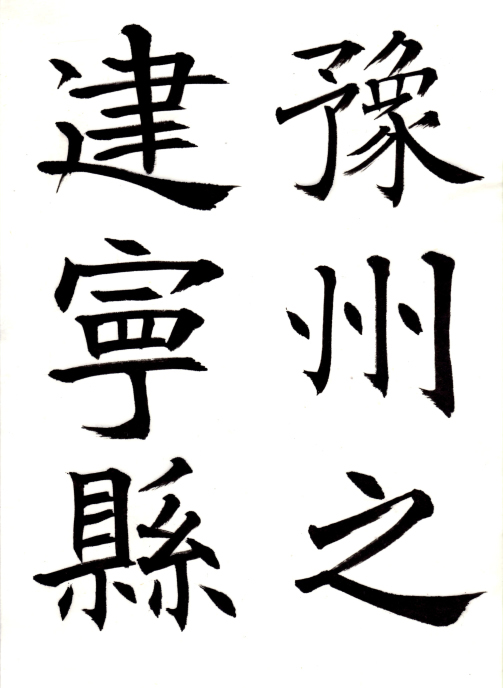 豫州之
建寧縣